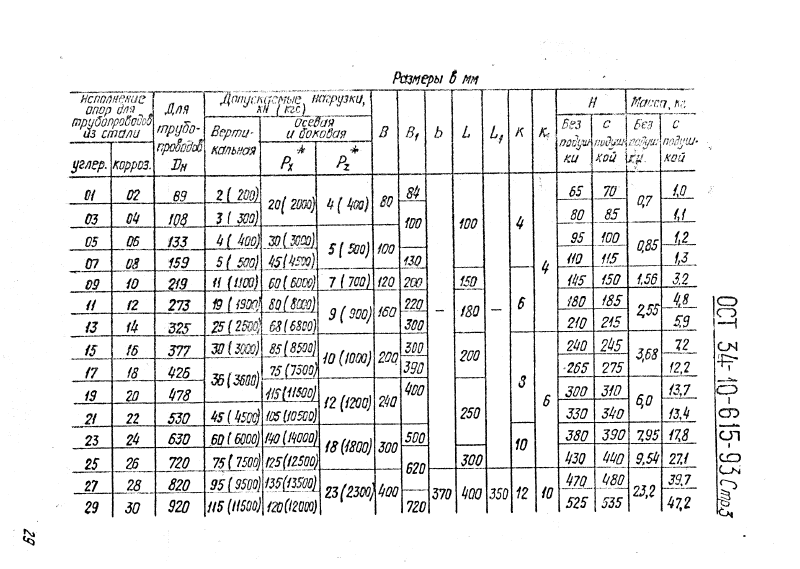 Размеры в мм
Исполнение опор для трубопроводов из стали | Для трубопроводов Dн | Допускаемые нагрузки, кН (кгс) | B | B1 | b | L | L1 | K | K1 | H | Масса, кг
углер. | корроз. | Вертикальная | Осевая и боковая | Без подушки | с подушкой | Без подушки | с подушкой
Px* | Pz*
01 | 02 | 89 | 2 (200) | 20 (2000) | 4 (400) | 80 | 84 | – | 100 | – | 4 | 4 | 65 | 70 | 0,7 | 1,0
03 | 04 | 108 | 3 (300) | 100 | 80 | 85 | 1,1
05 | 06 | 133 | 4 (400) | 30 (3000) | 5 (500) | 100 | 95 | 100 | 0,85 | 1,2
07 | 08 | 159 | 5 (500) | 45 (4500) | 130 | 110 | 115 | 1,3
09 | 10 | 219 | 11 (1100) | 60 (6000) | 7 (700) | 120 | 200 | 150 | 6 | 145 | 150 | 1,56 | 3,2
11 | 12 | 273 | 19 (1900) | 80 (8000) | 9 (900) | 160 | 220 | 180 | 180 | 185 | 2,55 | 4,8
13 | 14 | 325 | 25 (2500) | 68 (6800) | 300 | 210 | 215 | 5,9
15 | 16 | 377 | 30 (3000) | 85 (8500) | 10 (1000) | 200 | 300 | 200 | 6 | 240 | 245 | 3,68 | 7,2
17 | 18 | 426 | 36 (3600) | 75 (7500) | 390 | 265 | 275 | 12,2
19 | 20 | 478 | 115 (11500) | 12 (1200) | 240 | 400 | 250 | 300 | 310 | 6,0 | 13,7
21 | 22 | 530 | 45 (4500) | 105 (10500) | 330 | 340 | 13,4
23 | 24 | 630 | 60 (6000) | 140 (14000) | 18 (1800) | 300 | 500 | 10 | 380 | 390 | 7,95 | 17,8
25 | 26 | 720 | 75 (7500) | 125 (12500) | 620 | 300 | 430 | 440 | 9,54 | 27,1
27 | 28 | 820 | 95 (9500) | 135 (13500) | 23 (2300) | 400 | 370 | 400 | 350 | 12 | 10 | 470 | 480 | 23,2 | 39,7
29 | 30 | 920 | 115 (11500) | 120 (12000) | 720 | 525 | 535 | 47,2
ОСТ 34-10-615-93 Стр.3
29